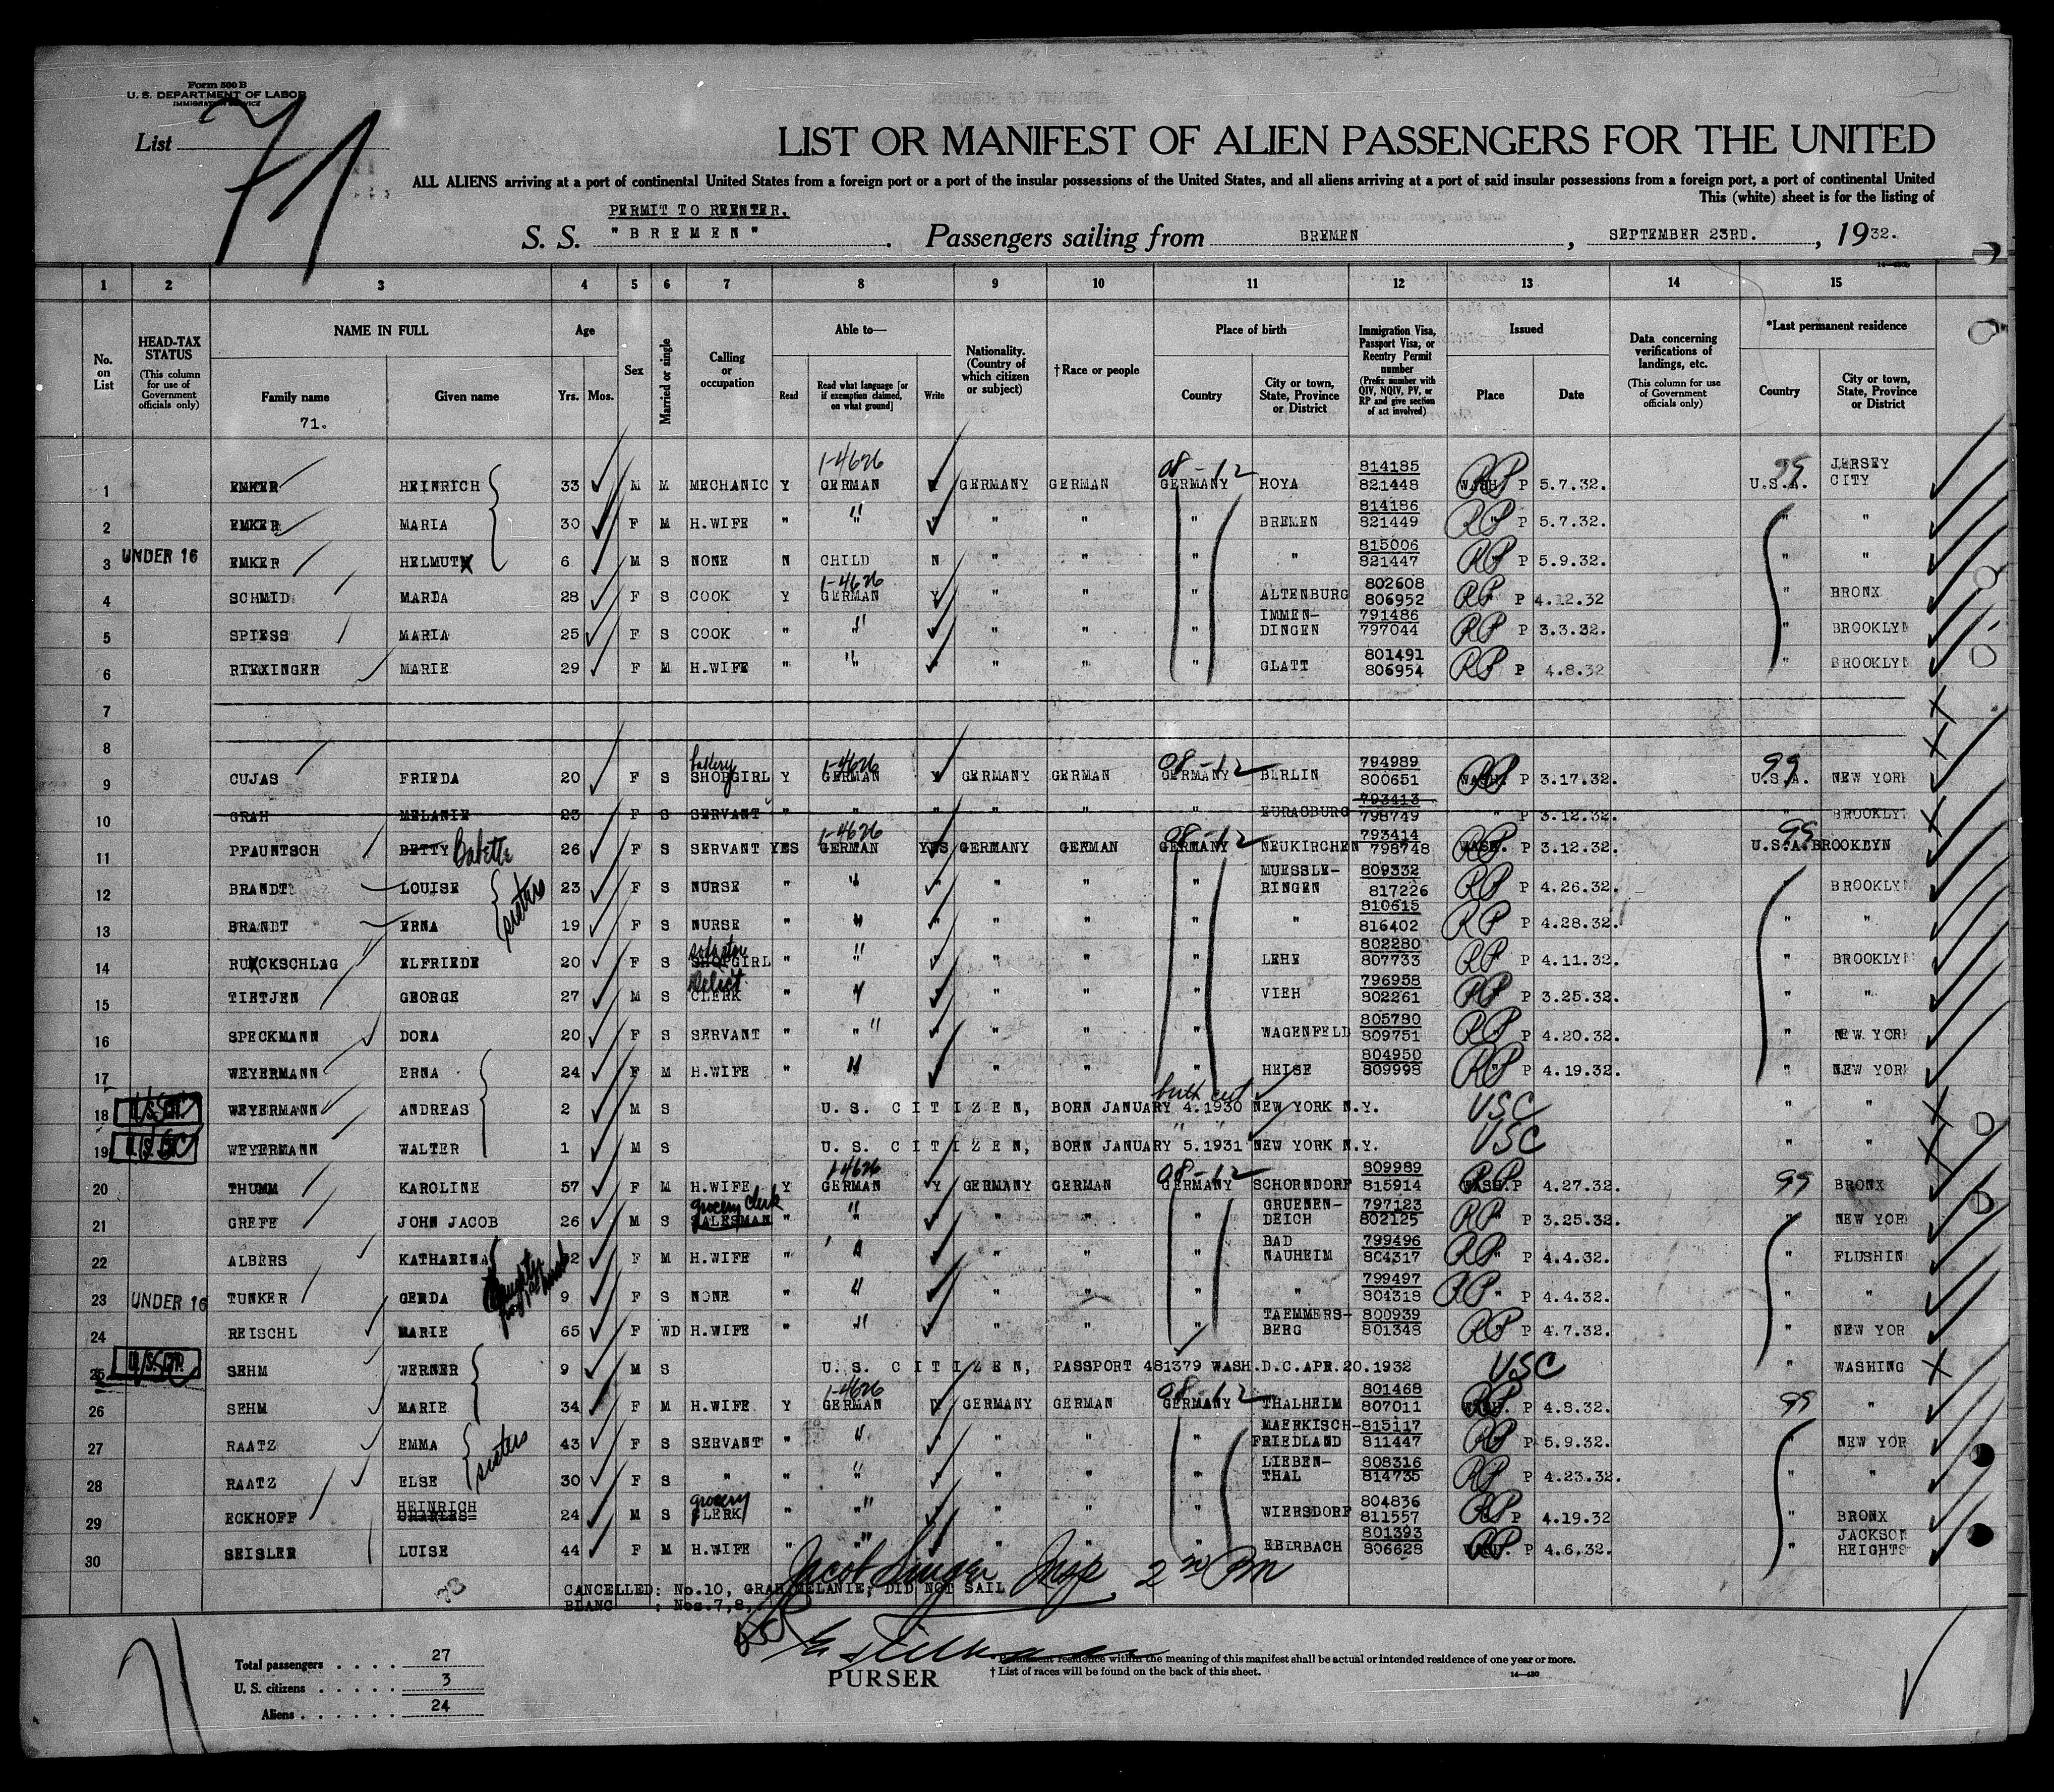 Form 500 B
U. S. DEPARTMENT OF LABOR
IMMIGRATION SERVICE
List 71
LIST OR MANIFEST OF ALIEN PASSENGERS FOR THE UNITED
ALL ALIENS arriving at a port of continental United States from a foreign port or a port of the insular possessions of the United States, and all aliens arriving at a port of said insular possessions from a foreign port, a port of continental United
This (white) sheet is for the listing of
PERMIT TO REENTER.
S. S. "BREMEN". Passengers sailing from BREMEN, SEPTEMBER 23RD., 1932.
1 2 3 4 5 6 7 8 9 10 11 12 13 14 15
No. on List
HEAD-TAX STATUS (This column for use of Government officials only)
NAME IN FULL Family name Given name
71.
Age Yrs. Mos.
Sex
Married or single
Calling or occupation
Able to— Read Read what language [or if exemption claimed, on what ground] Write
Nationality. (Country of which citizen or subject)
†Race or people
Place of birth Country City or town, State, Province or District
Immigration Visa, Passport Visa, or Reentry Permit number (Prefix number with QIV, NQIV, PV, or RP and give section of act involved)
Issued Place Date
Data concerning verifications of landings, etc. (This column for use of Government officials only)
*Last permanent residence Country City or town, State, Province or District
1 EMKER HEINRICH 33 M M MECHANIC Y 1-4626 GERMAN GERMANY GERMAN 08-12 GERMANY HOYA 814185 821448 RP WASH. P 5.7.32. 99 U.S.A. JERSEY CITY
2 EMKER MARIA 30 F M H.WIFE " " " " " " BREMEN 814186 821449 RP P 5.7.32. " "
3 UNDER 16 EMKER HELMUT 6 M S NONE N CHILD N " " " " 815006 821447 RP P 5.9.32. " "
4 SCHMID MARIA 28 F S COOK Y 1-4626 GERMAN Y " " " ALTENBURG 802608 806952 RP P 4.12.32 " BRONX
5 SPIESS MARIA 25 F S COOK " " " " " " IMMENDINGEN 791486 797044 RP P 3.3.32. " BROOKLYN
6 RIEXINGER MARIE 29 F M H.WIFE " " " " " " GLATT 801491 806954 RP P 4.8.32 " BROOKLYN
7
8
9 CUJAS FRIEDA 20 F S SHOPGIRL Y 1-4626 GERMAN Y GERMANY GERMAN 08-12 GERMANY BERLIN 794989 800651 RP WASH. P 3.17.32. 99 U.S.A. NEW YORK
10 GRAH MELANIE 23 F S SERVANT " " " " " " EURASBURG 793413 798749 " P 3.12.32. " BROOKLYN
11 PFAUNTSCH BETTY Babette 26 F S SERVANT YES 1-4626 GERMAN YES GERMANY GERMAN 08-12 GERMANY NEUKIRCHEN 793414 798748 RP WASH. P 3.12.32. 99 U.S.A. BROOKLYN
12 BRANDT LOUISE sisters 23 F S NURSE " " " " " " MUESSLERINGEN 809332 817226 RP P 4.26.32. " BROOKLYN
13 BRANDT ERNA 19 F S NURSE " " " " " " " 810615 816402 RP P 4.28.32. " "
14 RUCKSCHLAG ELFRIEDE 20 F S SHOPGIRL " " " " " " LEHE 802280 807733 RP P 4.11.32. " BROOKLYN
15 TIETJEN GEORGE 27 M S Delict. CLERK " " " " " " VIEH 796958 802261 RP P 3.25.32. " "
16 SPECKMANN DORA 20 F S SERVANT " " " " " " WAGENFELD 805780 809751 RP P 4.20.32. " NEW YORK
17 WEYERMANN ERNA 24 F M H.WIFE " " " " " " HEISE 804950 809998 RP P 4.19.32. " NEW YORK
18 WEYERMANN ANDREAS 2 M S U. S. CITIZEN, BORN JANUARY 4.1930 NEW YORK N.Y. birth cert USC " "
19 WEYERMANN WALTER 1 M S U. S. CITIZEN, BORN JANUARY 5.1931 NEW YORK N.Y. " " USC " "
20 THUMM KAROLINE 57 F M H.WIFE Y 1-4626 GERMAN Y GERMANY GERMAN 08-12 GERMANY SCHORNDORF 809989 815914 RP WASH. P 4.27.32. 99 BRONX
21 GREFE JOHN JACOB 26 M S grocery clerk SALESMAN " " " " " " GRUENENDEICH 797123 802125 RP P 3.25.32. " NEW YOR
22 ALBERS KATHARINA F M H.WIFE " " " " " " BAD NAUHEIM 799496 804317 RP P 4.4.32. " FLUSHIN
23 UNDER 16 TUNKER GERDA 9 F S NONE " " " " " " " 799497 804318 RP P 4.4.32. " "
24 REISCHL MARIE 65 F WD H.WIFE " " " " " " TAEMMERSBERG 800939 801348 RP P 4.7.32. " NEW YOR
25 SEHM WERNER 9 M S U. S. CITIZEN, PASSPORT 481379 WASH.D.C.APR.20.1932 USC " WASHING
26 SEHM MARIE 34 F M H.WIFE Y 1-4626 GERMAN GERMANY GERMAN 08-12 GERMANY THALHEIM 801468 807011 RP WASH. P 4.8.32. 99 "
27 RAATZ EMMA sisters 43 F S SERVANT " " " " " " MAERKISCH-FRIEDLAND 815117 811447 RP P 5.9.32. " NEW YOR
28 RAATZ ELSE 30 F S " " " " " " " LIEBENTHAL 808316 814735 RP P 4.23.32. " "
29 ECKHOFF HEINRICH CHARLES 24 M S grocery CLERK " " " " " " WIERSDORF 804836 811557 RP P 4.19.32 " BRONX
30 SEISLER LUISE 44 F M H.WIFE " " " " " " EBERBACH 801393 806628 RP WASH. P 4.6.32. " JACKSON HEIGHTS
Jacob Singer Insp 2 30 PM
CANCELLED: No.10, GRAH MELANIE, DID NOT SAIL
BLANC : Nos.7,8,
Total passengers . . . . 27
U. S. citizens . . . . . 3
Aliens . . . . . . 24
PURSER
*Permanent residence within the meaning of this manifest shall be actual or intended residence of one year or more.
† List of races will be found on the back of this sheet.
14—480